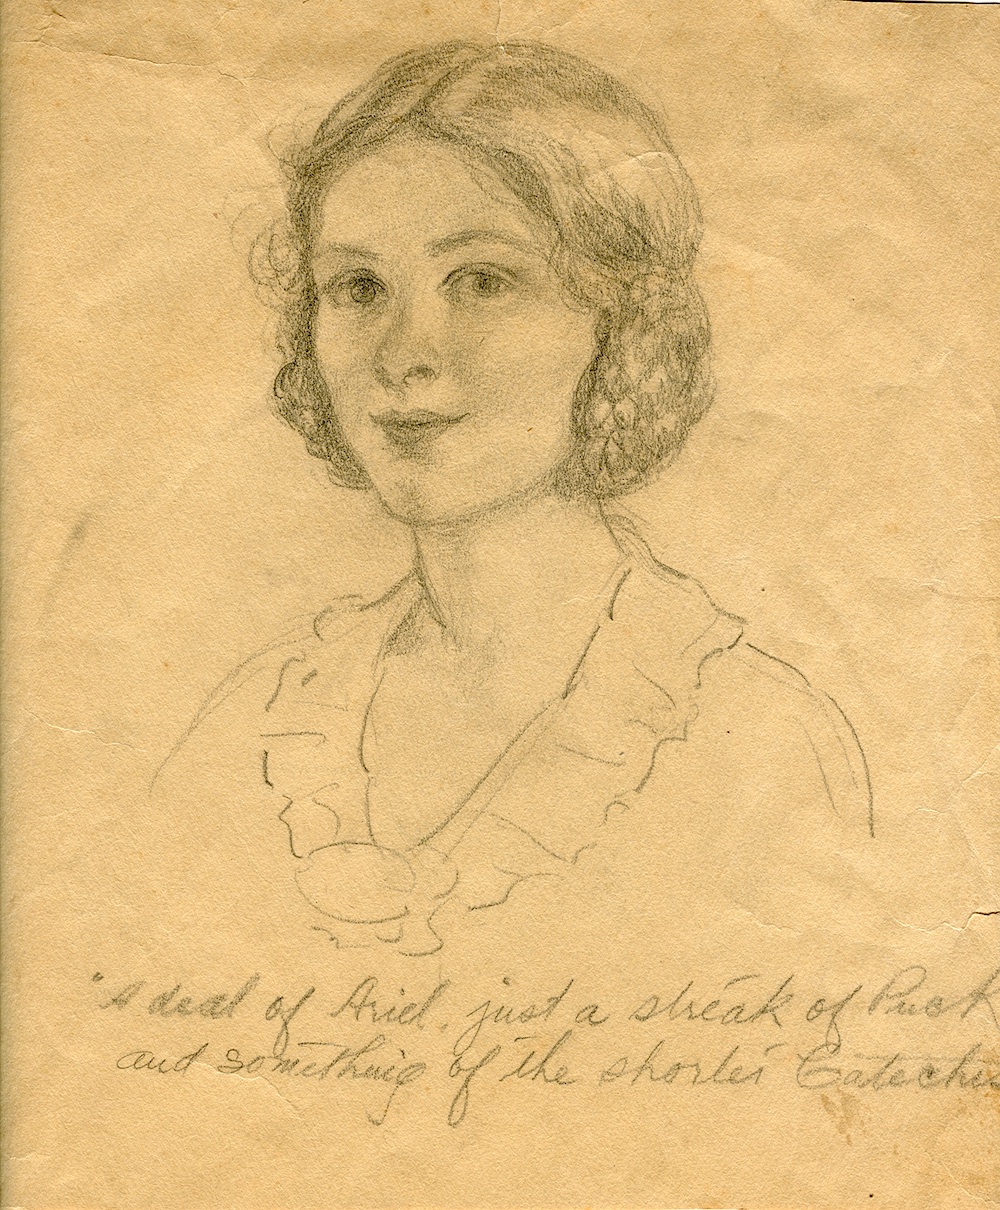 "A deal of Ariel, just a streak of Puck
and something of the shorter Catechis